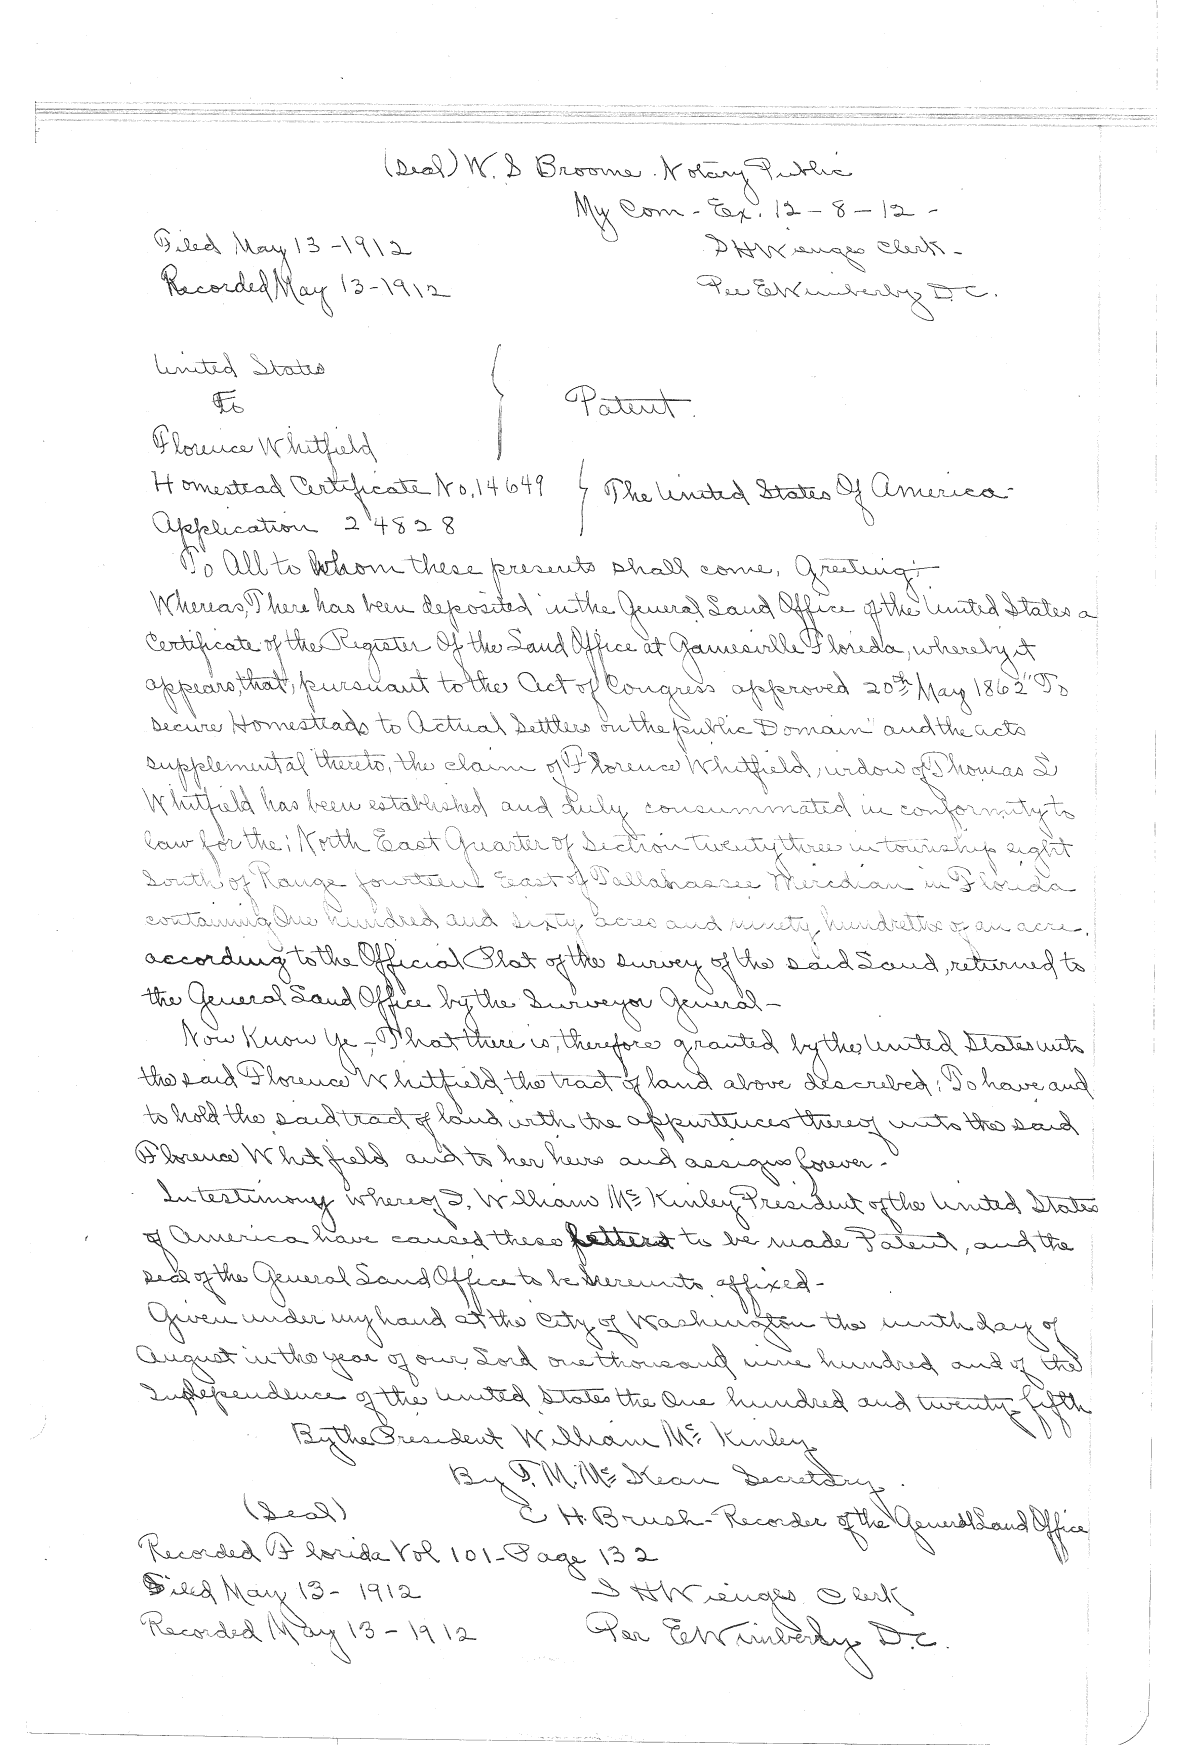 (Seal) W. S Broome. Notary Public
My Com - Ex. 12-8-12 -
Filed May 13-1912
S H Wienges Clerk -
Recorded May 13-1912
Per E Wimberly D. C.
United States
To
Patent.
Florence Whitfield
Homestead Certificate No, 14649
The United States Of America
Application 24828
To All to Whom these presents shall come, Greeting:
Whereas, There has been deposited in the General Land Office of the United States a
Certificate of the Register Of the Land Office at Gainesville Florida, whereby it
appears, that, pursuant to the Act of Congress approved 20th May 1862 "To
secure Homesteads to Actual Settlers on the public Domain" and the acts
supplemental thereto, the claim of Florence Whitfield, widow of Thomas L
Whitfield has been established and duly consummated in conformity to
law for the; North East Quarter of Section twenty three in township eight
South of Range fourteen East of Tallahassee Meridian in Florida
containing One hundred and sixty acres and ninety hundreths of an acre.
according to the Official Plat of the survey of the said Land, returned to
the General Land Office by the Surveyor General -
Now Know Ye - That there is, therefore granted by the United States unto
the said Florence Whitfield the tract of land above described; To have and
to hold the said tract of land with the appurtences thereof unto the said
Florence Whitfield and to her heirs and assigns forever -
In testimony whereof I, William McKinley President of the United States
of America have caused these letters to be made Patent, and the
seal of the General Land Office to be hereunto affixed -
Given under my hand at the City of Washington the ninth day of
August in the year of our Lord one thousand nine hundred and of the
Independence of the United States the One hundred and twenty-fifth
By the President William McKinley
By F. M. McKean Secretary.
(Seal)
C H. Brush - Recorder of the General Land Office
Recorded Florida Vol 101 - Page 132
Filed May 13 - 1912
S H Wienges Clerk
Recorded May 13 - 1912
Per E Wimberly D. C.